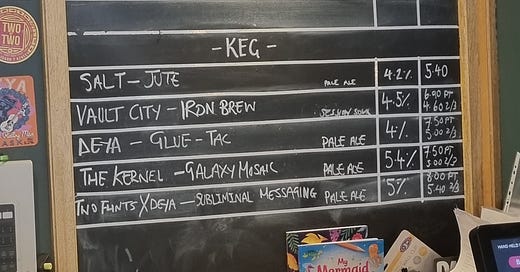 - KEG -
SALT - JUTE PALE ALE 4.2% 5.40
VAULT CITY - IRON BREW SESSION SOUR 4.5% 6.90 PT
4.60 2/3
DEYA - GLUE - TAC PALE ALE 4% 7.50 PT
5.00 2/3
THE KERNEL - GALAXY MOSAIC PALE ALE 5.4% 7.50 PT
5.00 2/3
TWO FLINTS X DEYA - SUBLIMINAL MESSAGING PALE ALE 5% 8.00 PT
5.40 2/3
TWO
TWO
My
Mermaid
HAND HELD